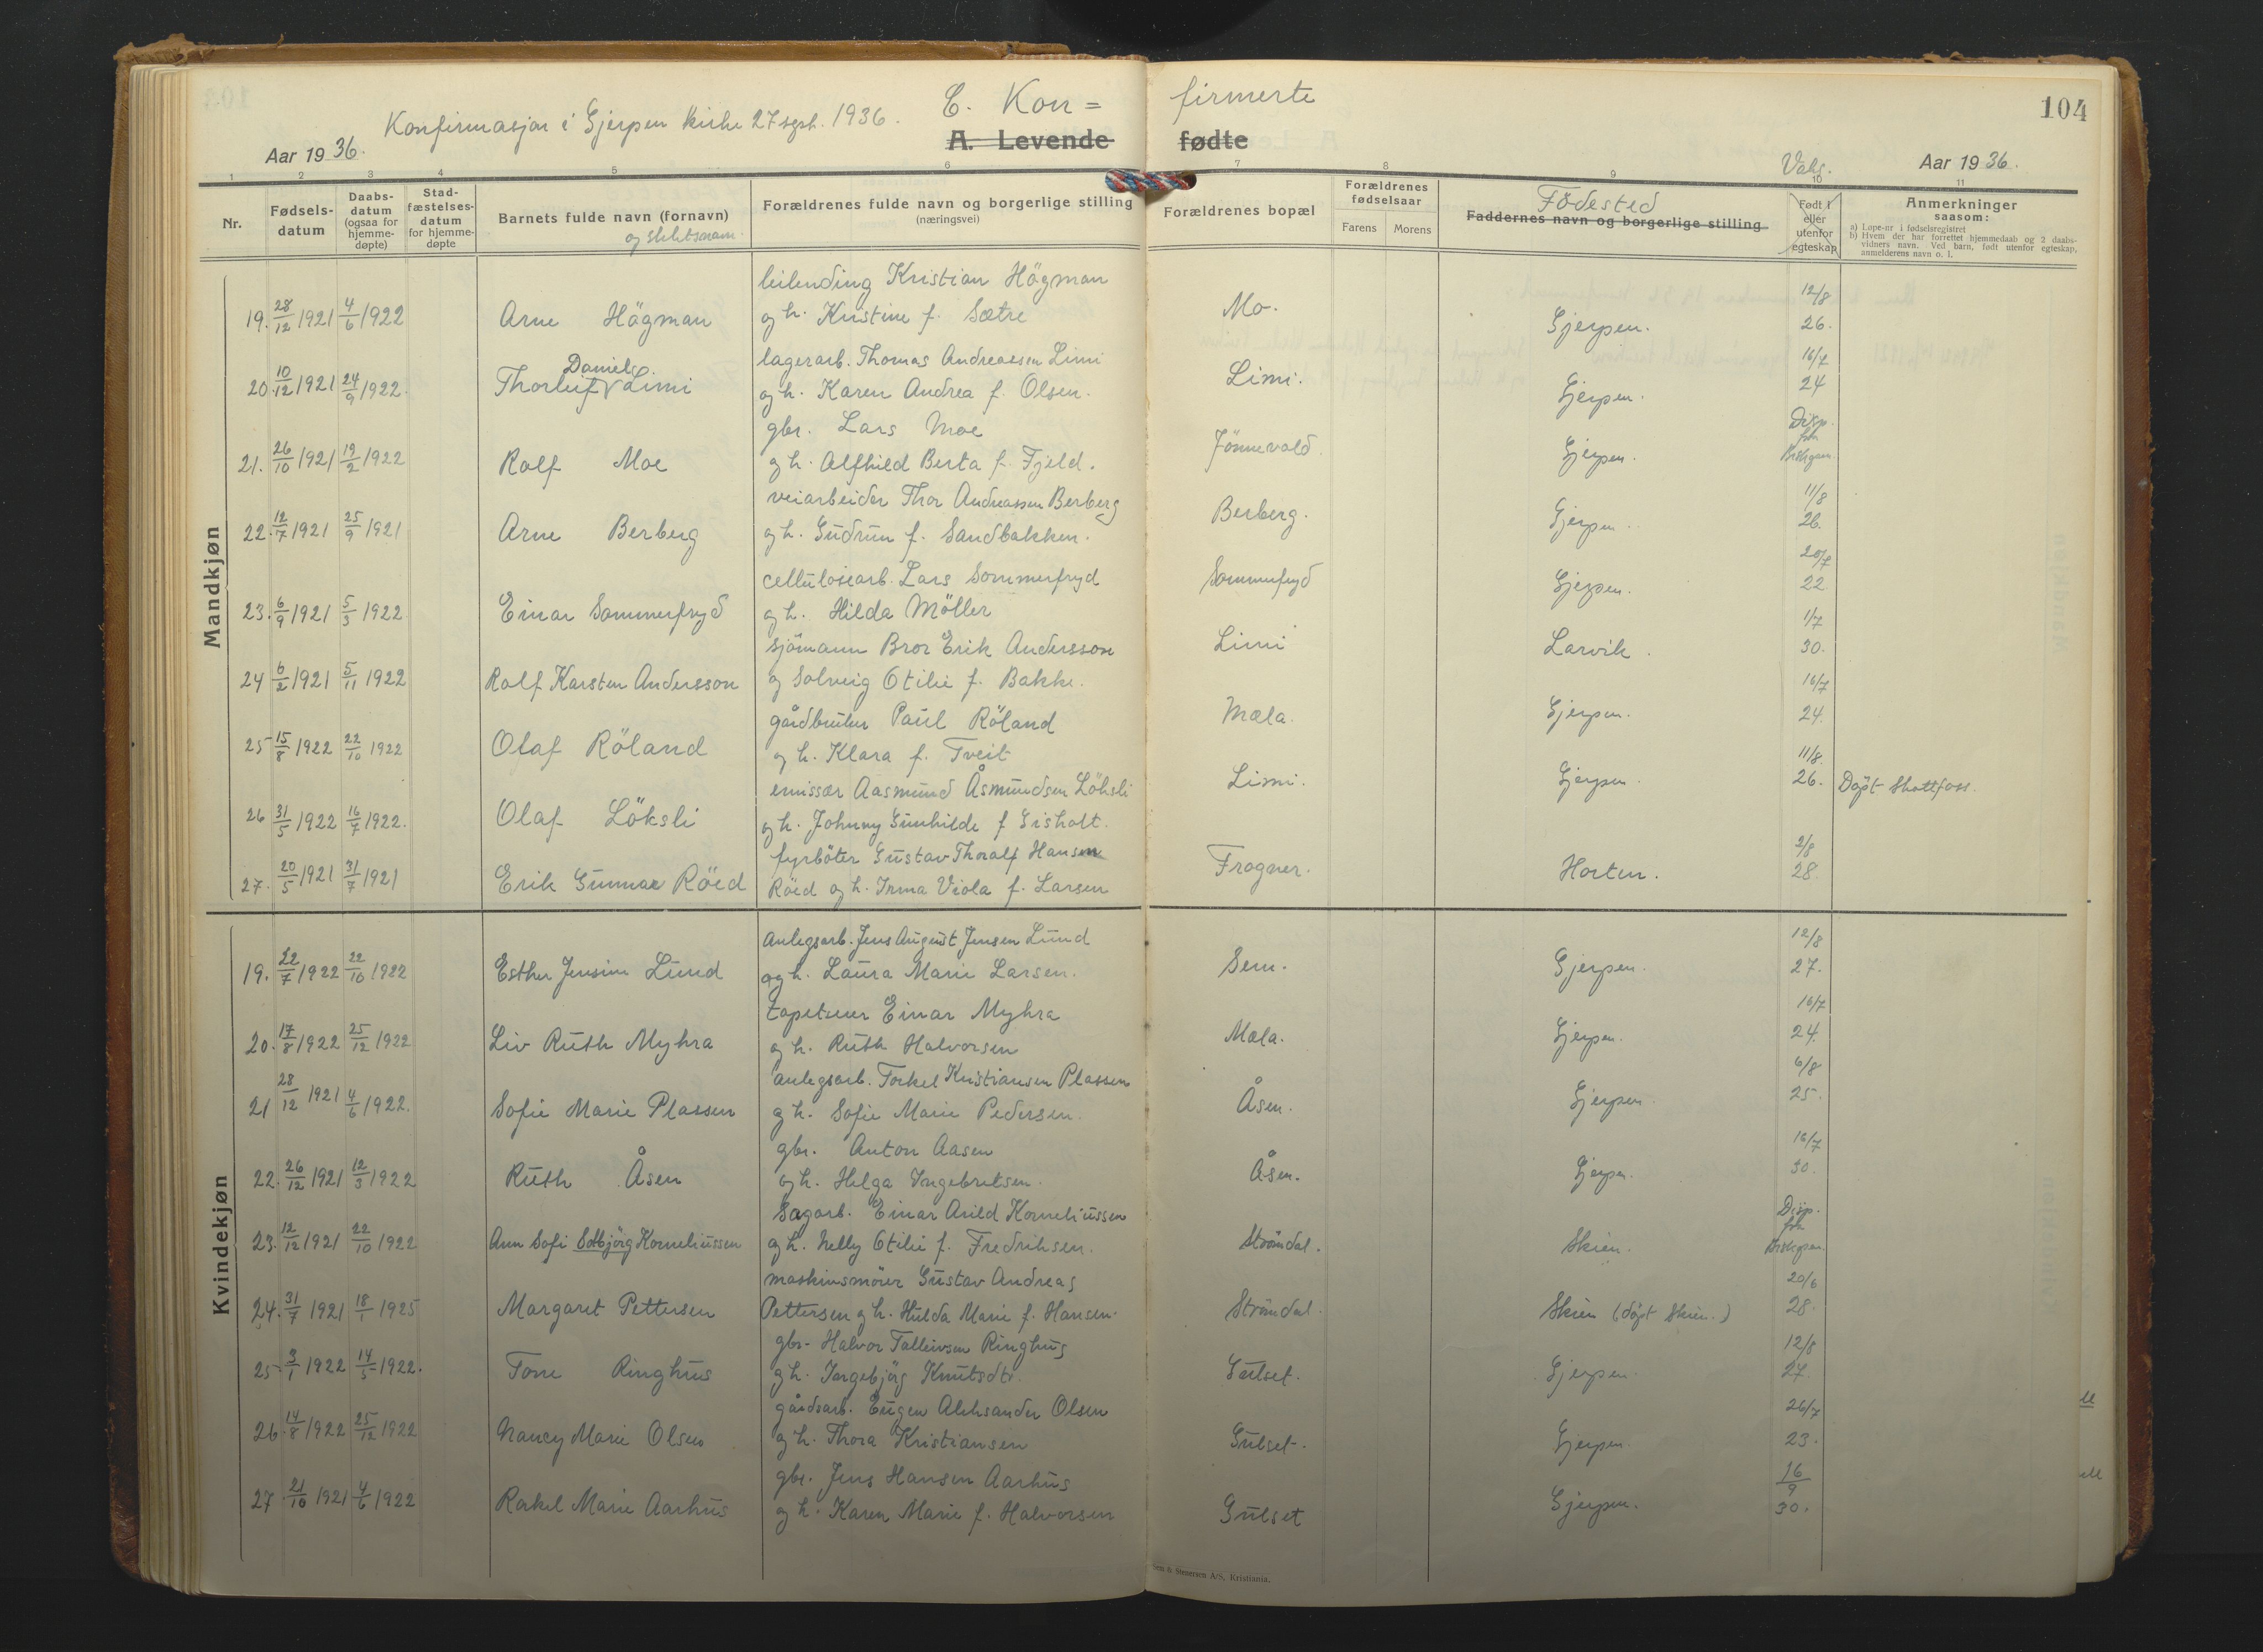 C. Kon=firmerte
104
Konfirmasjon i Gjerpen kirke 27 sept. 1936.
A. Levende fødte
Aar 1936.
Vaks.
Aar 1936.
1 2 3 4 5 6 7 8 9 10 11
Nr.
Fødsels-datum
Daabs-datum (ogsaa for hjemme-døpte)
Stad-fæstelses-datum for hjemme-døpte
Barnets fulde navn (fornavn)
og slektsnavn.
Forældrenes fulde navn og borgerlige stilling (næringsvei)
Forældrenes bopæl
Forældrenes fødselsaar
Farens Morens
Födested
Faddernes navn og borgerlige stilling
Født i eller utenfor egteskap
Anmerkninger saasom:
a) Løpe-nr i fødselsregistret
b) Hvem der har forrettet hjemmedaab og 2 daabs-vidners navn. Ved barn, født utenfor egteskap, anmelderens navn o. l.
Mandkjøn
leilending Kristian Högman
19. 28/12 1921 4/6 1922 Arne Högman og h. Kristine f. Sætre Mo. Gjerpen. 12/8 26.
lagerarb. Thomas Andreassen Limi
20. 10/12 1921 24/9 1922. Thorleif Daniels. Limi og h. Karen Andrea f. Olsen. Limi. Gjerpen. 16/7 24
gbr. Lars Moe
21. 26/10 1921 19/2 1922 Rolf Moe og h. Alfhild Berta f. Fjeld. Jönnevald. Gjerpen. Disp. fra Biskopen.
veiarbeider Thor Andreassen Berberg
22. 12/7 1921 25/9 1921 Arne Berberg og h. Gudrun f. Sandbakken. Berberg. Gjerpen. 11/8 26.
cellulosearb. Lars Sommerfryd
23. 6/9 1921 5/3 1922 Einar Sommerfryd og h. Hilda Möller Sommerfryd Gjerpen. 20/7 22.
sjömann Bror Erik Andersson
24 6/2 1921 5/11 1922 Rolf Karsten Andersson og Solveig Otilie f. Bakke. Limi Larvik. 1/7 30.
gårdbruker Paul Röland
25 15/8 1922 22/10 1922 Olaf Röland og h. Klara f. Tveit Mæla. Gjerpen. 16/7 24.
emissær Aasmund Åsmundsen Löksli
26 31/5 1922 16/7 1922. Olaf Löksli og h. Johnny Gunhilde f Gisholt. Limi. Gjerpen. 11/8. 26. Döpt Skotfoss.
fyrböter Gustav Thoralf Hansen
27. 20/5 1921 31/7 1921 Erik Gunnar Röed Röed og h. Irma Viola f. Larsen Frogner. Horten. 2/8 28.
Kvindekjøn
Anlegsarb. Jens August Jensen Lund
19. 22/7 1922 22/10 1922 Esther Jensine Lund og h. Laura Marie Larsen. Sem. Gjerpen. 12/8 27.
tapetserer Einar Myhra
20. 17/8 1922 25/12 1922 Liv Ruth Myhra og h. Ruth Halvorsen Mæla. Gjerpen. 16/7 24.
anlegsarb. Torkel Kristiansen Plassen
21 28/12 1921 4/6 1922. Sofie Marie Plassen og h. Sofie Marie Pedersen. Åsen. Gjerpen 6/8 25.
gbr. Anton Aasen
22. 26/12 1921 12/3 1922 Ruth Åsen og h. Helga Ingebretsen. Åsen. Gjerpen. 16/7 30.
Sagarb. Einar Arild Korneliussen
23. 12/12 1921 22/10 1922 Ann Sofi Solbjörg Korneliussen og h. Nelly Otilie f. Fredriksen. Strömdal. Skien. Disp. fra Biskopen.
maskinsmörer Gustav Andreas
24. 31/7 1921 18/1 1925 Margaret Pettersen Pettersen og h. Hulda Marie f. Hansen. Strömdal. Skien (döpt Skien.) 20/6 28.
gbr. Halvor Talleivsen Ringhus
25 3/1 1922 14/5 1922. Tone Ringhus og h. Ingebjörg Knutsdtr. Gulset. Gjerpen. 12/8 27.
gårdsarb. Eugen Aleksander Olsen
26. 14/8 1922 25/12 1922 Nancy Marie Olsen og h. Thora Kristiansen Gulset. Gjerpen. 26/7 23.
gbr. Jens Hansen Aarhus
27 21/10 1921 4/6 1922 Rakel Marie Aarhus og h. Karen Marie f. Halvorsen Gulset Gjerpen. 16/9 30.
& Stenersen A/S, Kristiania.